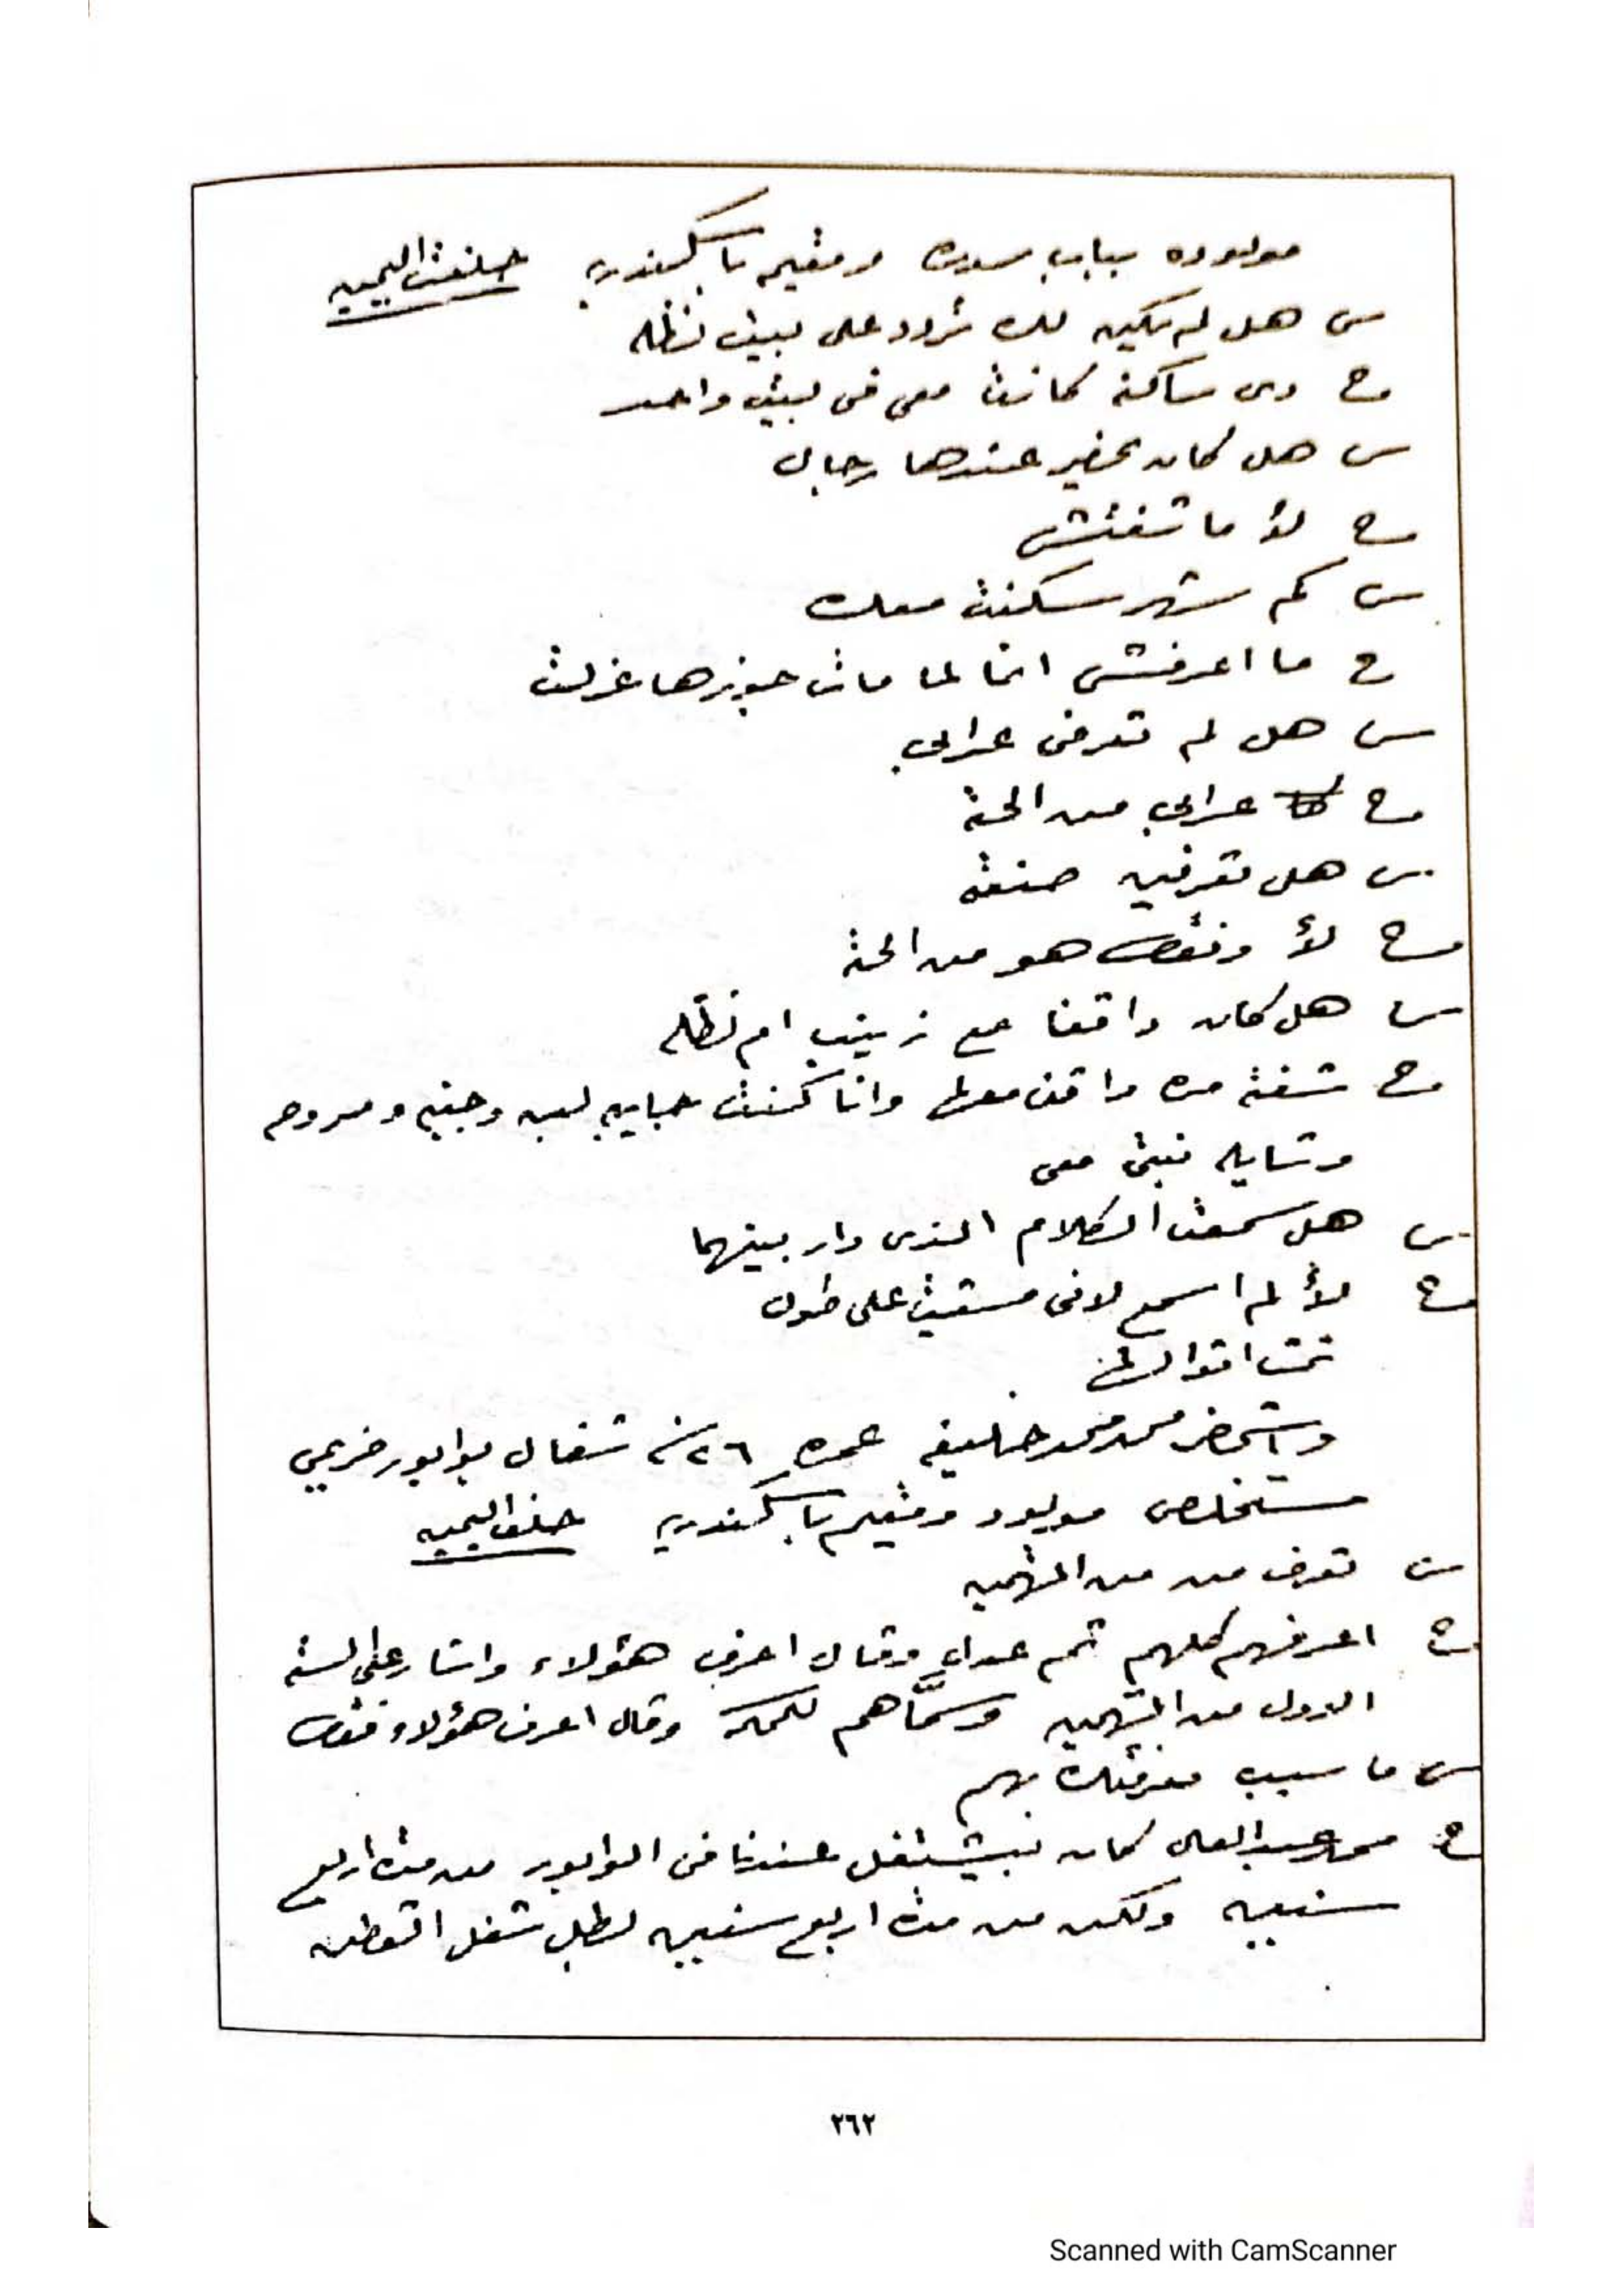 مولوده بباب سدره ومقيمه باسكندريه حلفت اليمين
س هل لم يكن لك تردد على بيت نظله
ج دى ساكنه كانت معى فى بيت واحد
س هل كان يحضر عندها رجال
ج لأ ما شفتش
س كم شهر سكنت معك
ج ما اعرفش انما لما مات جوزها عزلت
س هل لم تعرفى عرابى
ج عرابى من الحته
س هل تعرفين صنعته
ج لأ وفقط هو من الحته
س هل كان واقفا مع زينب ام نظله
ج شفته مره واقف معها وانا كنت جايبه لبن وجبنه ومروحه
وشايله بنتى معى
س هل سمعت الكلام الذى دار بينهما
ج لأ لم اسمع لانى مشيت على طول
تمت اقوالها
واستحضر محمد محمد خليفه عمره ٢٦ سنه شغال بوابور خريمى
مستخلص مولود ومقيم باسكندريه حلف اليمين
س تعرف مين من المتهمين
ج اعرفهم كلهم ثم عدل وقال اعرف هؤلاء واشار على السته
الاول من المتهمين وسمّاهم للمحكمة وقال اعرف هؤلاء فقط
س ما سبب معرفتك بهم
ج محمد عبد العال كان بيشتغل عندنا فى الوابور من مدة اربع
سنين ولكن من مدة اربع سنين بطل شغل القطن
٢٦٢
Scanned with CamScanner